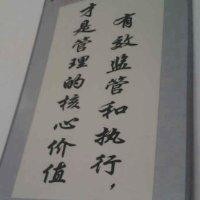 有效监管和执行，
才是管理的核心价值